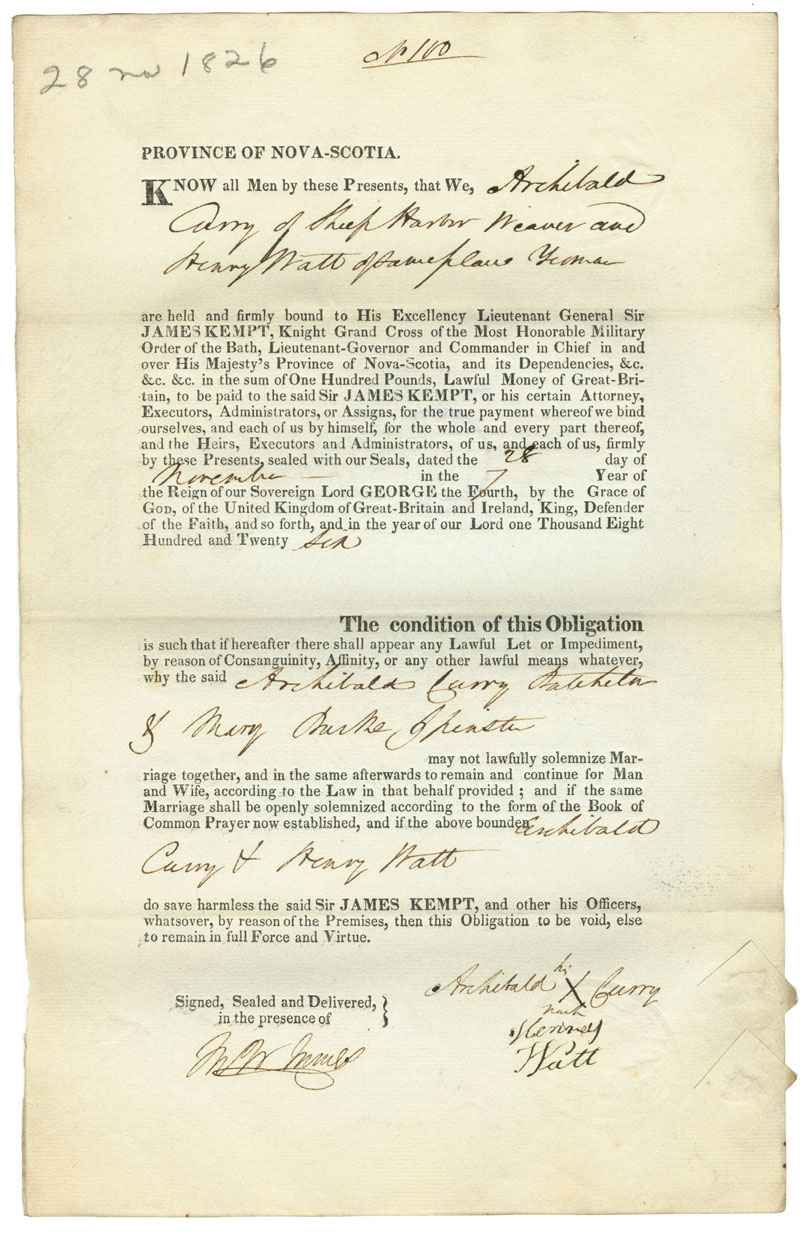 28 no 1826
No 100
PROVINCE OF NOVA-SCOTIA.
KNOW all Men by these Presents, that We, Archibald
Curry of Sheep Harbor Weaver and
Henry Watt of same place Yeoman
are held and firmly bound to His Excellency Lieutenant General Sir
JAMES KEMPT, Knight Grand Cross of the Most Honorable Military
Order of the Bath, Lieutenant-Governor and Commander in Chief in and
over His Majesty's Province of Nova-Scotia, and its Dependencies, &c.
&c. &c. in the sum of One Hundred Pounds, Lawful Money of Great-Bri-
tain, to be paid to the said Sir JAMES KEMPT, or his certain Attorney,
Executors, Administrators, or Assigns, for the true payment whereof we bind
ourselves, and each of us by himself, for the whole and every part thereof,
and the Heirs, Executors and Administrators, of us, and each of us, firmly
by these Presents, sealed with our Seals, dated the 28 day of
November in the 7 Year of
the Reign of our Sovereign Lord GEORGE the Fourth, by the Grace of
GOD, of the United Kingdom of Great-Britain and Ireland, King, Defender
of the Faith, and so forth, and in the year of our Lord one Thousand Eight
Hundred and Twenty Six
The condition of this Obligation
is such that if hereafter there shall appear any Lawful Let or Impediment,
by reason of Consanguinity, Affinity, or any other lawful means whatever,
why the said Archibald Curry Batchelor
& Mary Burke Spinster
may not lawfully solemnize Mar-
riage together, and in the same afterwards to remain and continue for Man
and Wife, according to the Law in that behalf provided ; and if the same
Marriage shall be openly solemnized according to the form of the Book of
Common Prayer now established, and if the above bounden Archibald
Curry & Henry Watt
do save harmless the said Sir JAMES KEMPT, and other his Officers,
whatsover, by reason of the Premises, then this Obligation to be void, else
to remain in full Force and Virtue.
Signed, Sealed and Delivered,
in the presence of
Archibald his X Curry
mark
Henney
Watt